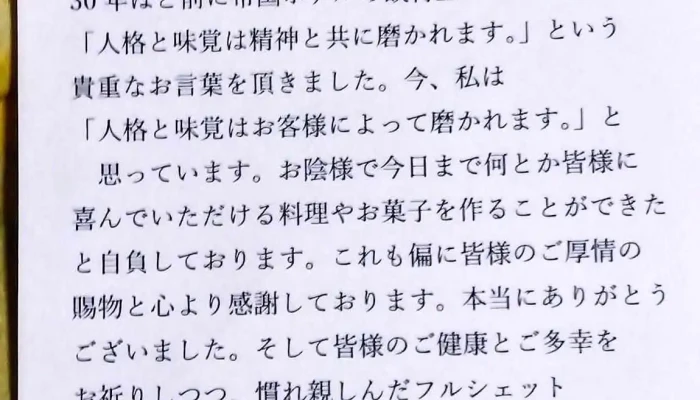 30年ほど前に帝国ホテルの
「人格と味覚は精神と共に磨かれます。」という
貴重なお言葉を頂きました。今、私は
「人格と味覚はお客様によって磨かれます。」と
思っています。お陰様で今日まで何とか皆様に
喜んでいただける料理やお菓子を作ることができた
と自負しております。これも偏に皆様のご厚情の
賜物と心より感謝しております。本当にありがとう
ございました。そして皆様のご健康とご多幸を
お祈りしつつ、慣れ親しんだフルシェット